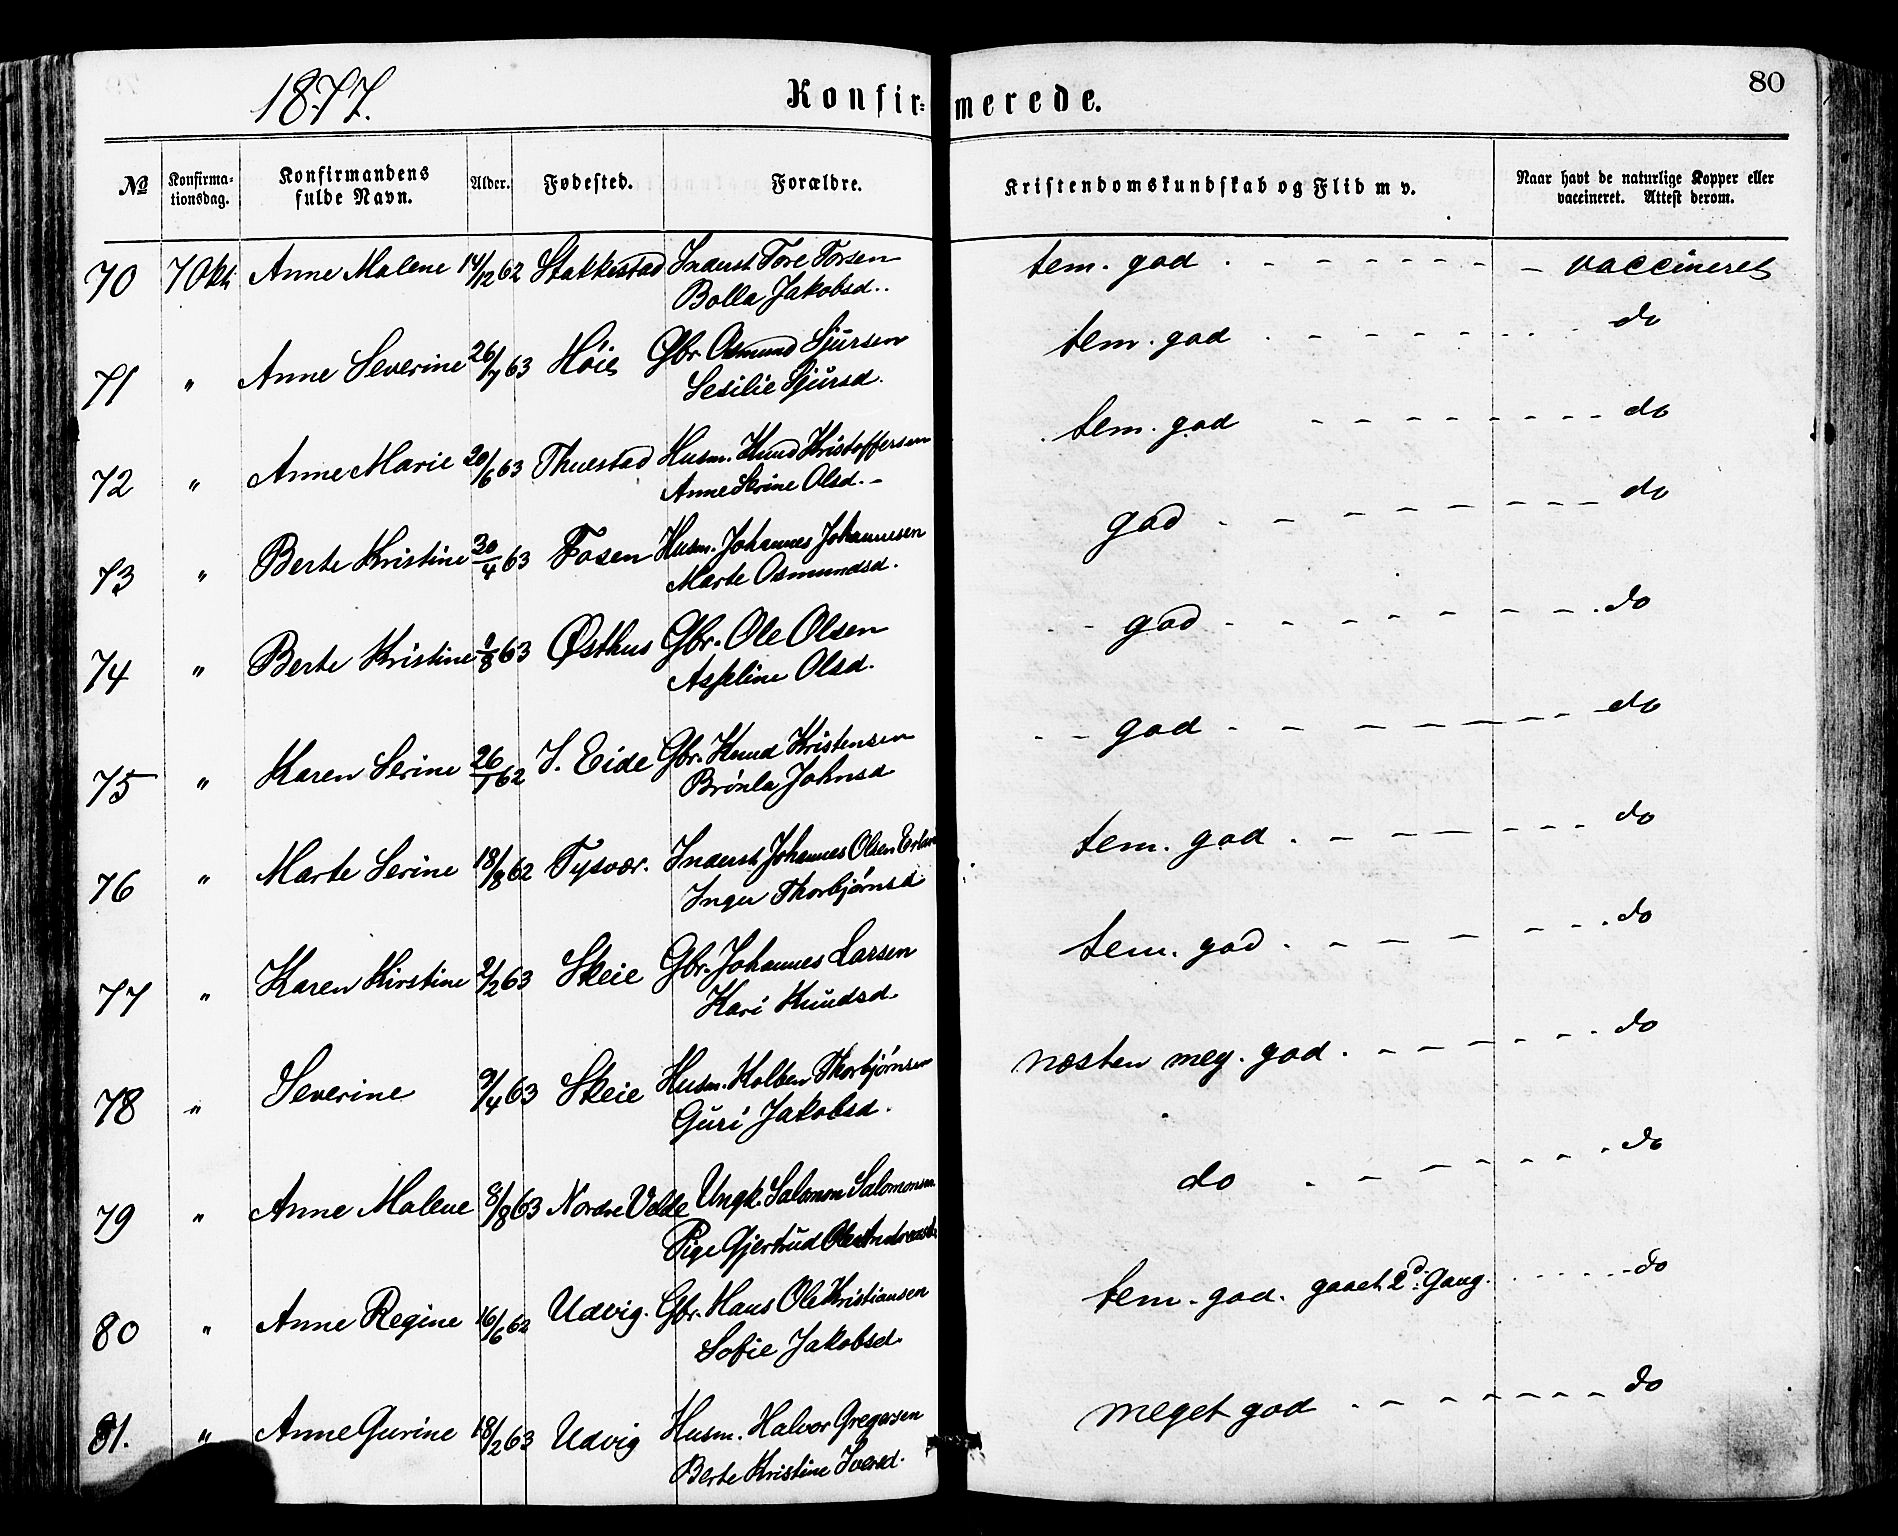 1877.
Konfir=merede.
80
No Konfirma-tionsdag. Konfirmandens fulde Navn. Alder. Fødested. Forældre. Kristendomskundskab og Flid m v. Naar havt de naturlige Kopper eller vaccineret. Attest derom.
70 7 Okt. Anne Malene 14/12 62 Stakkestad Inderst Tore Torsen tem. god - - - - - - - vaccineret
Bolla Jakobsd..
71 " Anne Severine 26/7 63 Höie Gbr. Osmund Sjursen tem. god - - - - - - - do
Sesilie Sjursd.
72 " Anne Marie 20/6 63 Thuestad Husm. Knud Kristoffersen tem. god - - - - - - - do
Anne Serine Olsd. -
73 " Berte Kristine 30/4 63 Fosen Husm. Johannes Johannesen god - - - - - - - do
Marte Osmundsd.
74 " Berte Kristine 9/8 63 Østhus Gbr. Ole Olsen - - god - - - - - - - do
Asseline Olsd.
75 " Karen Serine 26/1 62 S. Eide Gbr. Knud Kristensen - - god - - - - - - - do
Brønla Johnsd
76 " Marte Serine 18/8 62 Tysvær. Inderst Johannes Olsen tem. god - - - - - - - do
Inger Thorbjørnsd
77 " Karen Kirstine 2/2 63 Skeie Gbr. Johannes Larsen tem. god - - - - - - - do
Kari Knudsd.
78 " Severine 9/4 63 Skeie Husm. Kolben Thorbjørnsen næsten meg. god - - - - - - - do
Guri Jakobsd.
79 " Anne Malene 8/8 63 Nordre Velde Ungk. Salomon Salomonsen do - - - - - - - do
Pige Gjertrud
80 " Anne Regine 16/6 62 Udvig. Gbr. Hans Ole Kristiansen tem. god. gaaet 2d. Gang. - - - - - do
Sofie Jakobsd.
81. " Anne Gurine 18/2 63 Udvig Husm. Halvor Gregersen meget god - - - - - - - do
Berte Kristine Iversd.